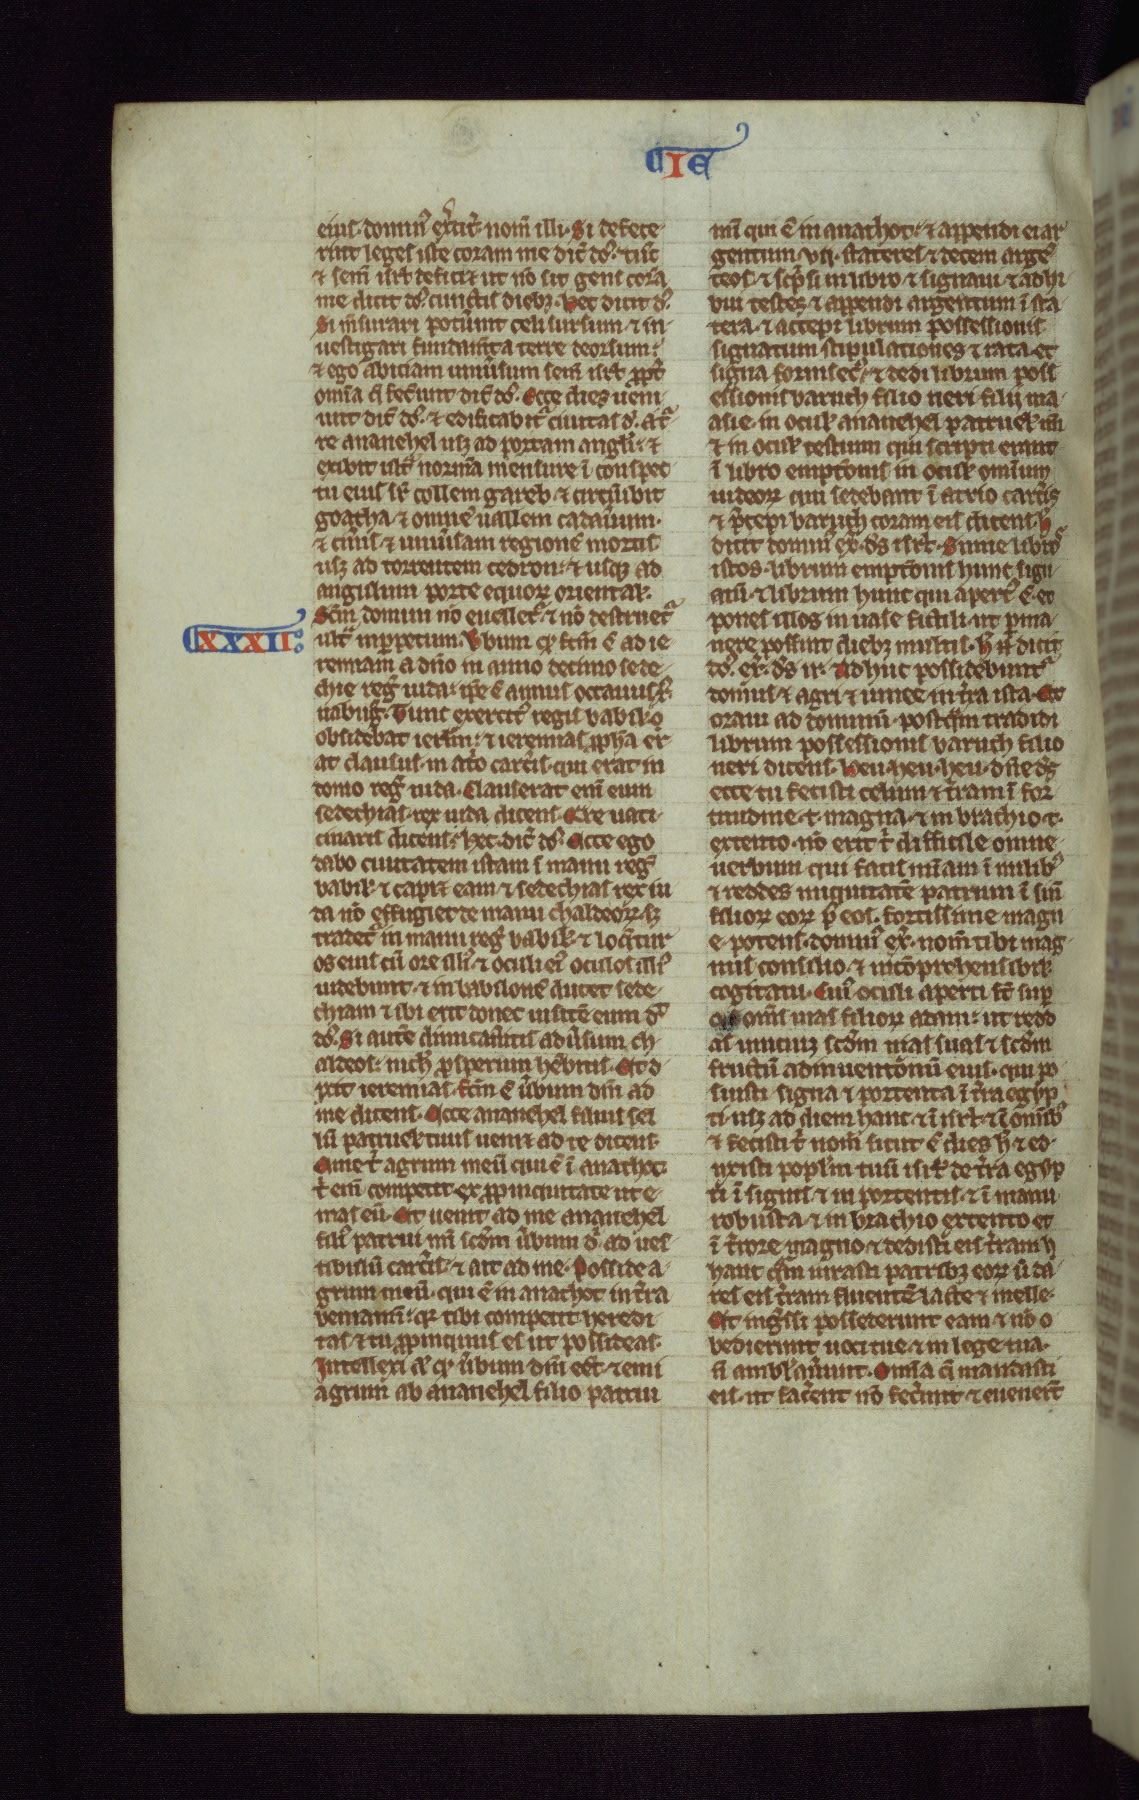 IE
eius. dominus exercituum nomen illi. Si defece-
rint leges iste coram me dicit dominus. tunc
⁊ semen israel deficiet ut non sit gens coram
me dicit dns cunctis diebꝫ. Hec dicit dns
Si mensurari potuerint celi sursum. ⁊ in-
uestigari fundamenta terre deorsum.
⁊ ego abiciam uniuersum semen israel propter
omnia que fecerunt dicit dns. Ecce dies ueni-
unt dicit dns. ⁊ edificabitur ciuitas dno. A tur-
re ananehel usqꝫ ad portam anguli. ⁊
exibit ultra norma mensure i conspec-
tu eius super collem gareb. ⁊ circuibit
goatha. ⁊ omnem uallem cadauerum.
⁊ cineris. ⁊ uniuersam regionem mortis
usqꝫ ad torrentem cedron. ⁊ usque ad
angulum porte equorum orientalis.
Scm domini non euelletur. ⁊ non destruetur
XXXII
ultra in perpetuum. Verbum quod factum e ad ie-
remiam a domino in anno decimo sede-
chie regis iuda. ipse e annus octauus .x.
nabug. Tunc exercitus regis babilonis
obsidebat ierlm. ⁊ ieremias propheta er-
at clausus. in atrio carceris. qui erat in
domo regis iuda. Clauserat enim eum
sedechias. rex iuda dicens. Qre uati-
cinaris dicens. hec. dicit dns. Ecce ego
dabo ciuitatem istam i manu regis
babil. ⁊ capiet eam. ⁊ sedechias rex iu
da non effugiet de manu chaldeorum. sꝫ
tradetur in manu regis babil. ⁊ loquetur
os eius cum ore illius. ⁊ oculi eius oculos illius
uidebunt. ⁊ in babilonem ducet sede-
chiam ⁊ ibi erit donec uisitem eum dicit
dns. Si autem dimicaueritis aduersum ch-
aldeos. nichil prosperum habebitis. Et di
xit ieremias. factum e uerbum domini ad
me dicens. Ecce ananehel filius sel
lum patruelis tuus ueniet ad te dicens.
Eme tibi agrum meum qui e i anathot
tibi enim competit ex propinquitate ut e-
mas eum. Et uenit ad me ananehel
filius patrui mei secundum uerbum dni ad ues-
tibulum carceris. ⁊ ait ad me. Posside a-
grum meum. qui e in anathot in terra
beniamin. quia tibi competit heredi
tas. ⁊ tu propinquus es ut possideas.
Intellexi autem quod uerbum domini esset. ⁊ emi
agrum ab ananehel filio patrui
mei qui e in anathot. ⁊ appendi ei ar
gentum. vii. stateres. ⁊ decem argen
teos. ⁊ scripsi in libro ⁊ signaui. ⁊ adhi-
bui testes ⁊ appendi argentum i sta-
tera. ⁊ accepi librum possessionis
signatum stipulationes ⁊ rata. et
signa forinsecus. ⁊ dedi librum poss
essionis baruch filio neri filii ma-
asie. in oculis ananehel patruelis mei
⁊ in oculis testium qui scripti erant
i libro emptionis. in oculis omnium
iudeorum qui sedebant i atrio carceris
⁊ precepi baruch coram eis dicens. h
dicit dominus exercituum. deus israel. Sume libros
istos. librum emptionis hunc sign-
atum. ⁊ librum hunc qui apertus e. et
pones illos in uase fictili. ut perma-
nere possint diebꝫ multis. h enim dicit
dns. ex. deus isr. Adhuc possidebuntur
domus. ⁊ agri ⁊ uinee in terra ista. Et
oraui ad dominum. postquam tradidi
librum possessionis baruch filio
neri dicens. Heu. heu. heu. domine deus
ecce tu fecisti celum ⁊ terram i for
titudine .t. magna. ⁊ in brachio .t.
extento. non erit tibi difficile omne
uerbum. qui facis misericordiam i milibus
⁊ reddes iniquitatem patrum i sinum
filiorum eorum post eos. fortissime magn
e. potens. dominus ex. nomen tibi mag-
nus consilio. ⁊ incomprehensibilis
cogitatu. Cuius oculi aperti sunt super
omnes uias filiorum adam. ut redd
as unicuiqꝫ secundum uias suas ⁊ secundum
fructum adinuentionum eius. qui po-
suisti signa ⁊ portenta i terra egyp
ti. usqꝫ ad diem hanc. ⁊ i israel. ⁊ i omnibus
⁊ fecisti tibi nomen sicut e dies hec ⁊ ed-
uxisti populum tuum israel de terra egyp
ti i signis. ⁊ in portentis. ⁊ i manu
robusta. ⁊ in brachio extento et
i terrore magno. ⁊ dedisti eis terram h
hanc quam iurasti patribꝫ eorum ut da-
res eis terram fluentem lacte ⁊ melle.
Et ingressi possederunt eam. ⁊ non o
bedierunt uoci tue. ⁊ in lege tua.
non ambulauerunt. Omnia que mandasti
eis. ut facerent non fecerunt ⁊ euenerunt